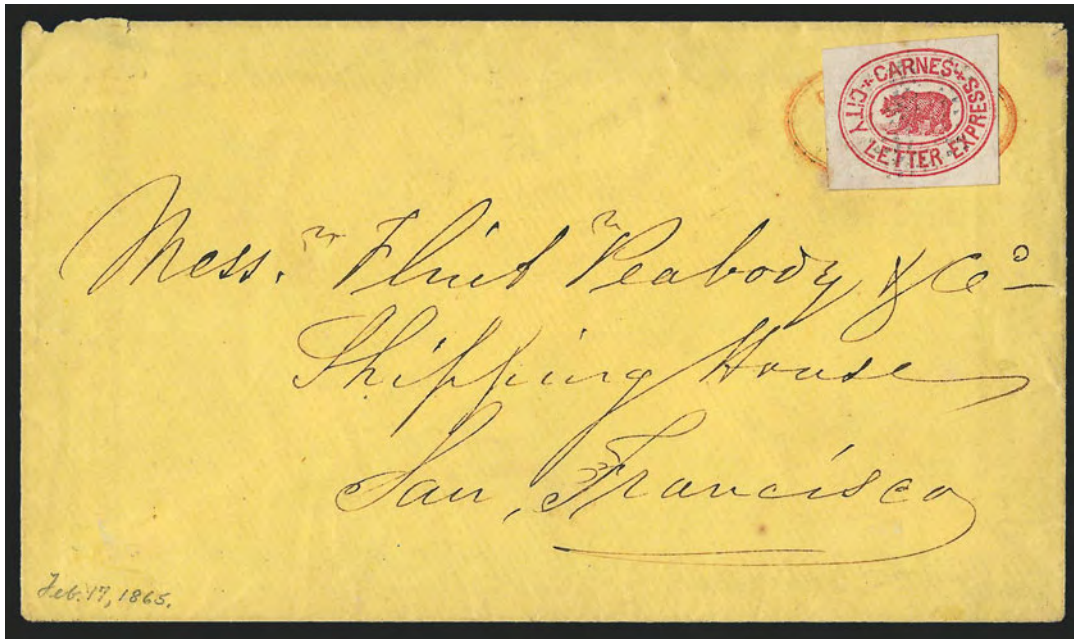 CARNES
CITY LETTER EXPRESS
Mess.rs Flint Peabody & Co
Shipping House
San Francisco
Feb. 17, 1865.